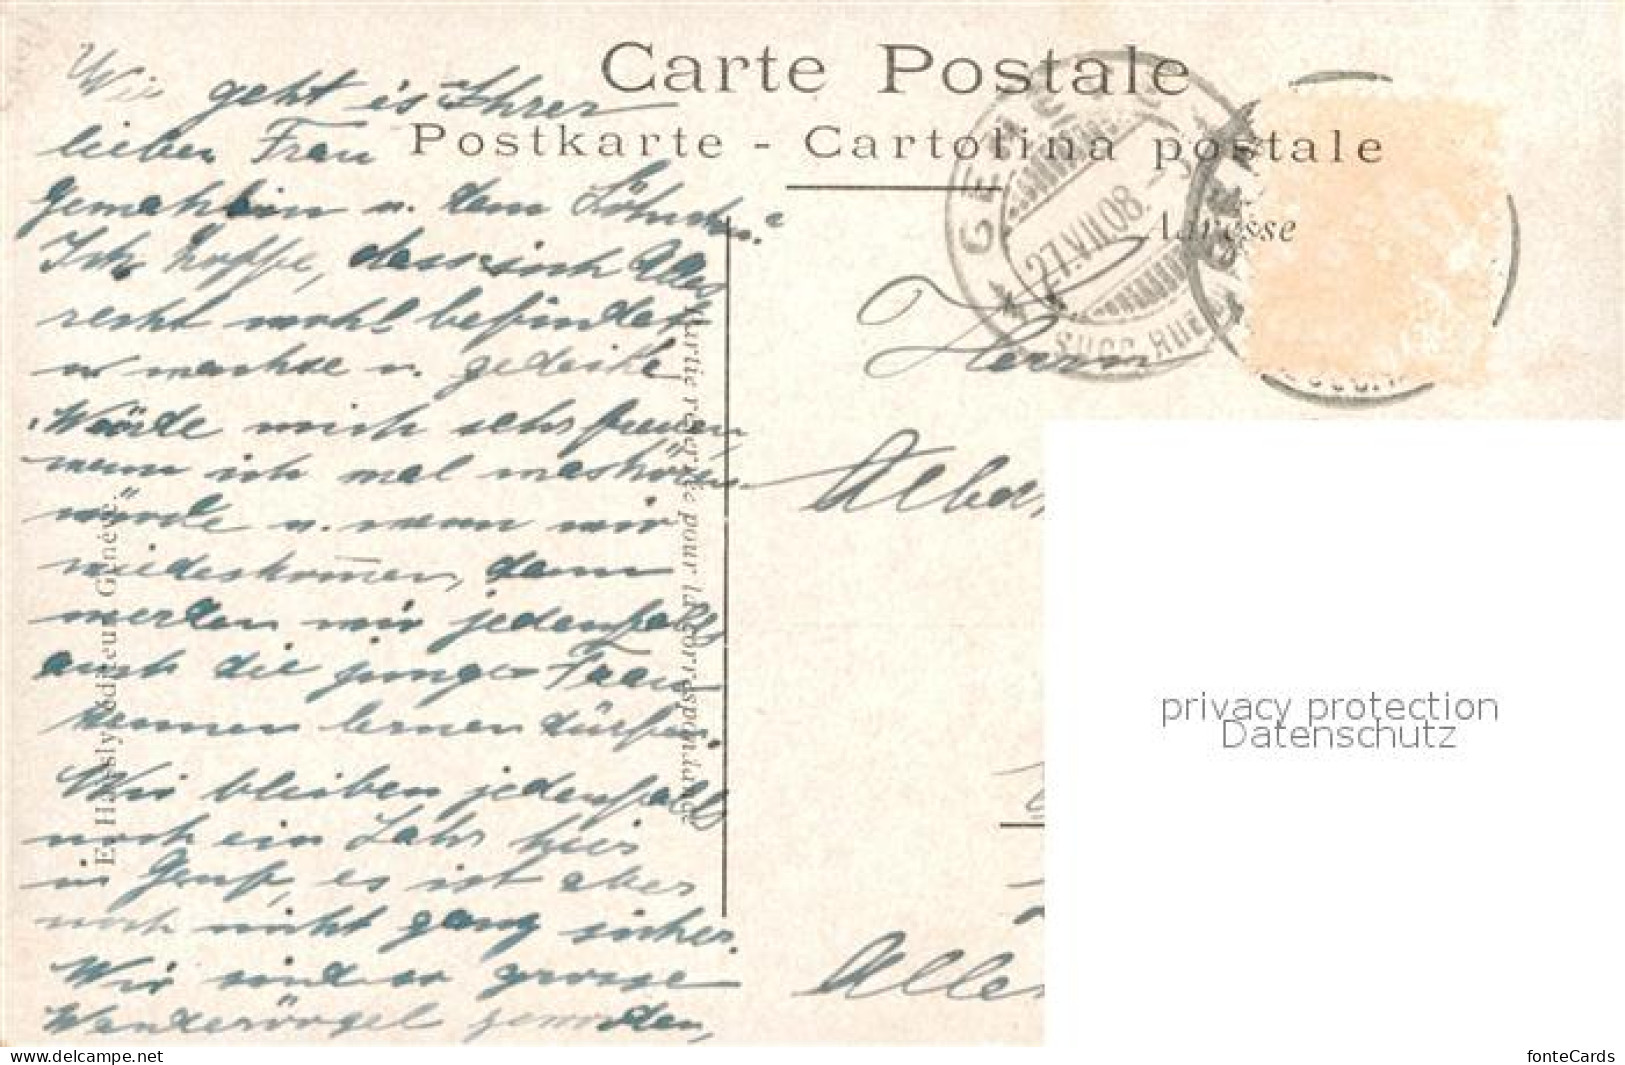 Carte Postale
Postkarte - Cartolina postale
Adresse
Wie geht es Ihrer
lieben Frau
Gemahlin u. dem Söhnchen?
Ich hoffe, dass sich Alles
recht wohl befindet
u. wachse u. gedeihe
Würde mich sehr freuen,
wenn ich mal
würde u. wenn wir
wiederkommen, dann
werden wir jedenfalls
auch die junge Frau
kennen lernen dürfen.
Wir bleiben jedenfalls
noch ein Jahr hier
in Genf, es ist aber
noch nicht ganz sicher.
Wir sind so grosse
Wandervögel geworden,
Partie reservée pour la correspondance
éditeur Genève.
27.VII.08.
SUCC. RUE
Herrn
Alber
privacy protection
Datenschutz
https://www.delcampe.net
fonteCards